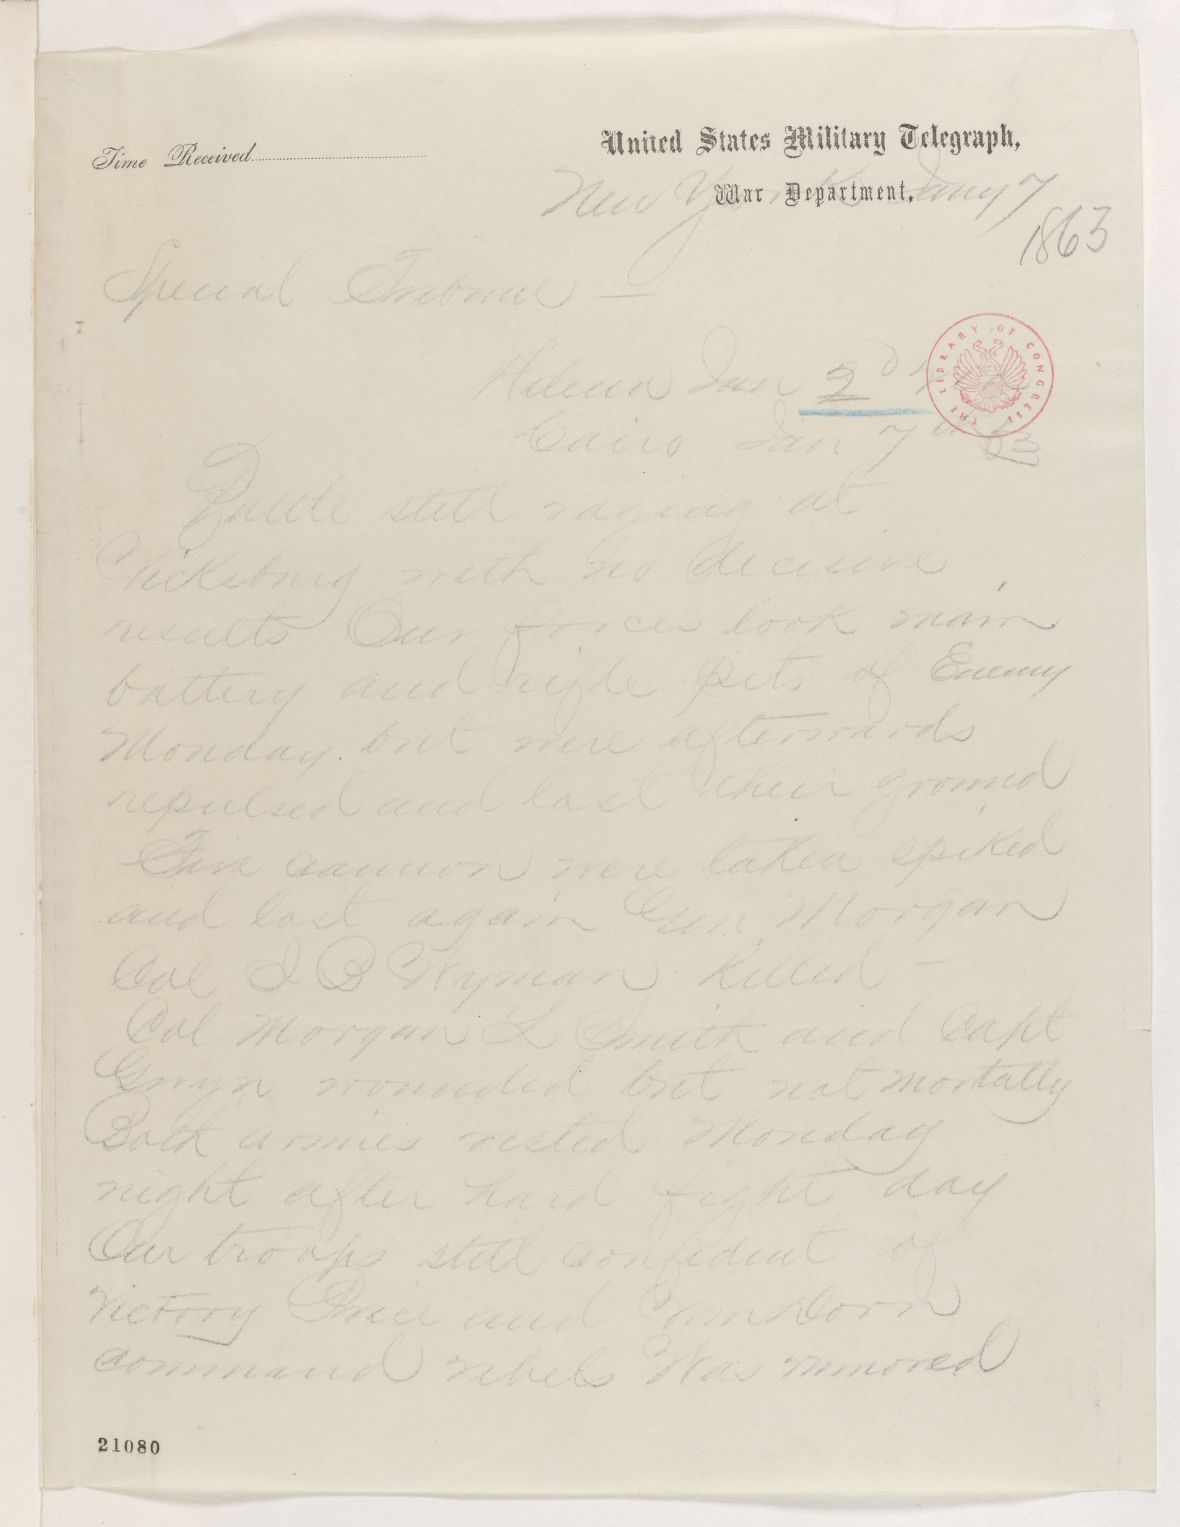 Time Received
United States Military Telegraph,
War Department,
New York Jany 7
1863
Special Tribune —
Helena Jan 3d
THE LIBRARY OF CONGRESS
Cairo Jan 7th 63
Battle still raging at
Vicksburg with no decisive
results Our forces took main
battery and rifle pits of Enemy
Monday. but were afterwards
repulsed and lost their ground
Five cannon were taken spiked
and lost again Gen. Morgan
Col J B Wyman Killed —
Col Morgan L Smith and Capt
Gwyn wounded but not mortally
Both armies rested Monday
night after hard fight day
Our troops still confident of
victory Price and Van Dorn
command rebels Was rumored
21080